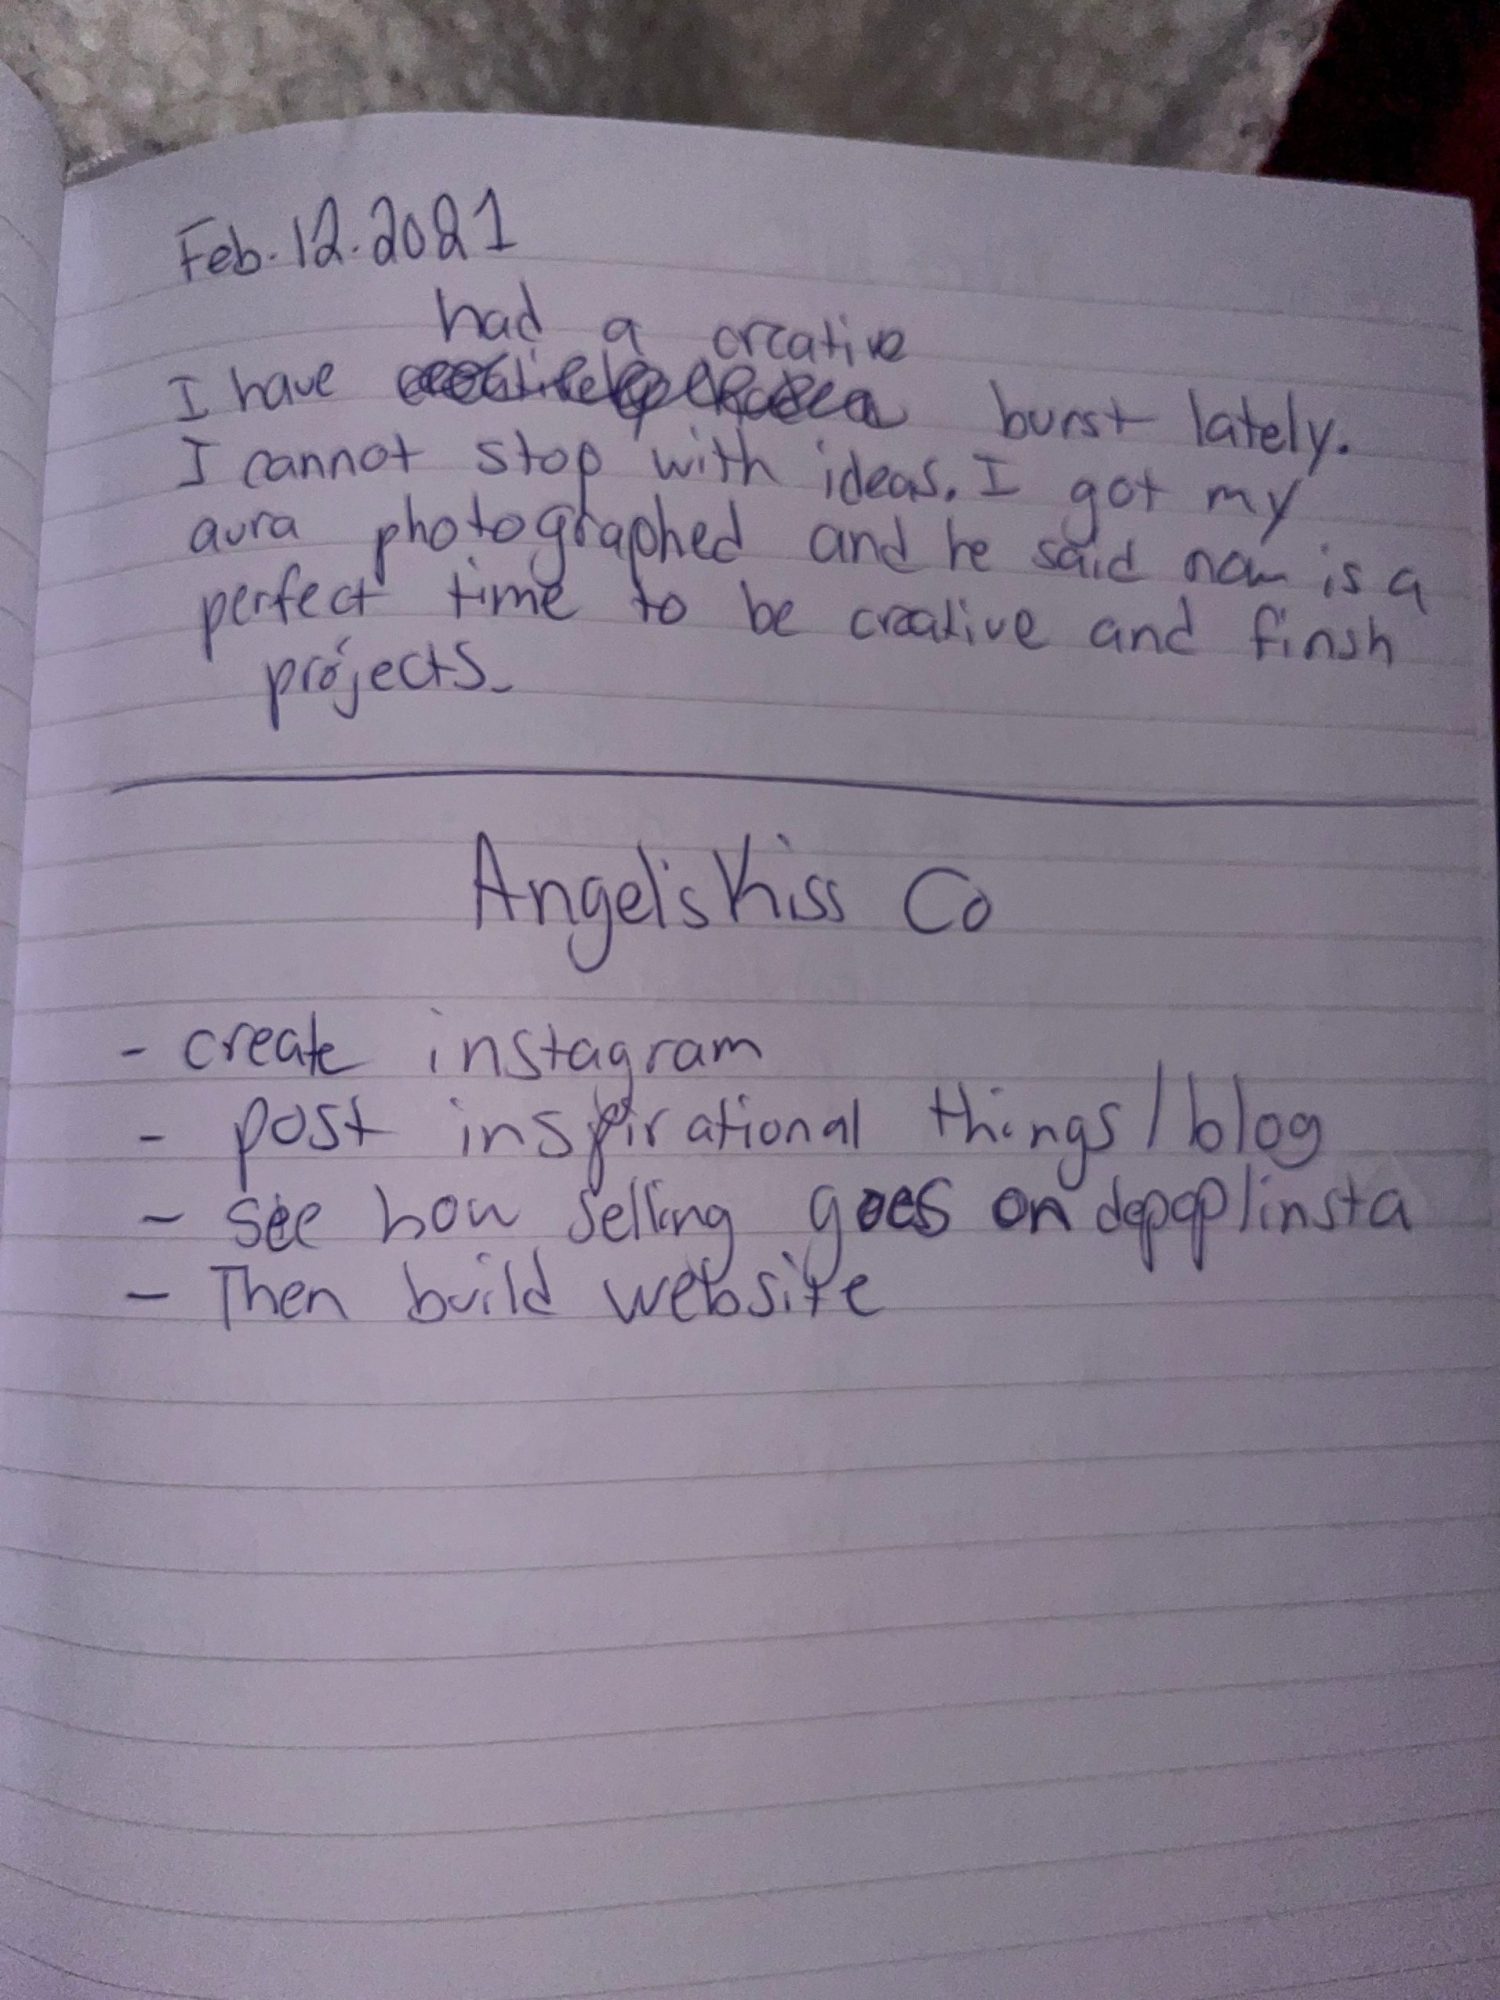 Feb.12.2021
had a creative
I have burst lately.
I cannot stop with ideas. I got my
aura photographed and he said now is a
perfect time to be creative and finsh
projects.
Angel's Kiss Co
- create instagram
- post inspirational things/blog
- see how selling goes on depop/insta
- Then build website